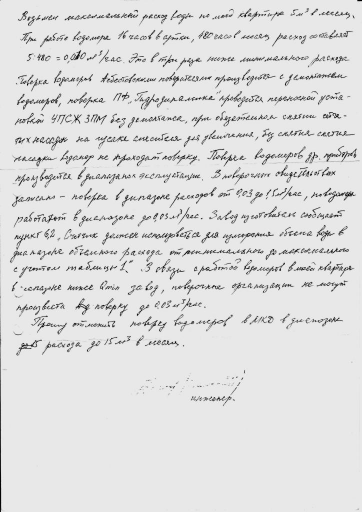 Возьмем максимальный расход воды на мою квартиру 5 м³ в месяц.
При работе водомера 16 часов в сутки, 480 часов месяц расход составляет
5:480 = 0,010 м³/час. Это в три раза ниже минимального расхода.
Поверка водомеров Житомирскими поверителями производится с демонтажем
водомеров, поверка ПФ "Гидродинамика" проводится переносной уста-
новкой УПСЖ 3ПМ без демонтажа, при обязательном снятии ста-
рых насадок на гусаке смесителя для увеличения, без снятия
насадки водомер не проходит поверку. Поверка водомеров др. приборов
производится в диапазоне эксплуатации. В поверочном свидетельстве
записано - поверка в диапазоне расходов от 0,03 до 1,5 м³/час, а водомеры
работают в диапазоне до 0,03 м³/час. Завод изготовитель сообщает
пункт 6.2. Счетчик должен использоваться для измерения объема воды в
диапазоне объемного расхода от минимального до максимального
с учетом таблицы 1". В связи с работой водомеров в моей квартире
в диапазоне ниже Qmin завод, поверочные организации не могут
произвести поверку до 0,03 м³/час.
Прошу отменить поверку водомеров в МКД в диапазоне
расхода до 15 м³ в месяц.
инженер.